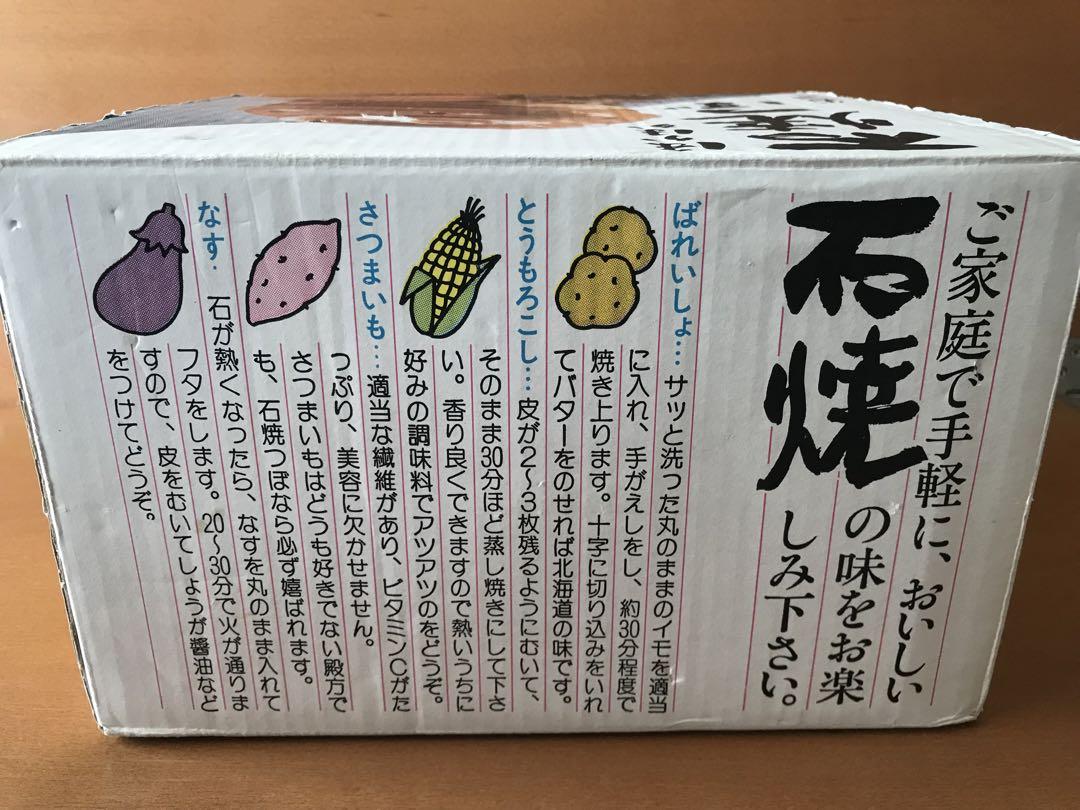 ご家庭で手軽に、おいしい
石焼の味をお楽
しみ下さい。
ばれいしょ…サッと洗った丸のままのイモを適当
に入れ、手がえしをし、約30分程度で
焼き上ります。十字に切り込みをいれ
てバターをのせれば北海道の味です。
とうもろこし…皮が2〜3枚残るようにむいて、
そのまま30分ほど蒸し焼きにして下さ
い。香り良くできますので熱いうちに
好みの調味料でアツアツのをどうぞ。
さつまいも…適当な繊維があり、ビタミンCがた
っぷり、美容に欠かせません。
さつまいもはどうも好きでない殿方で
も、石焼つぼなら必ず嬉ばれます。
なす・石が熱くなったら、なすを丸のまま入れて
フタをします。20〜30分で火が通りま
すので、皮をむいてしょうが醤油など
をつけてどうぞ。